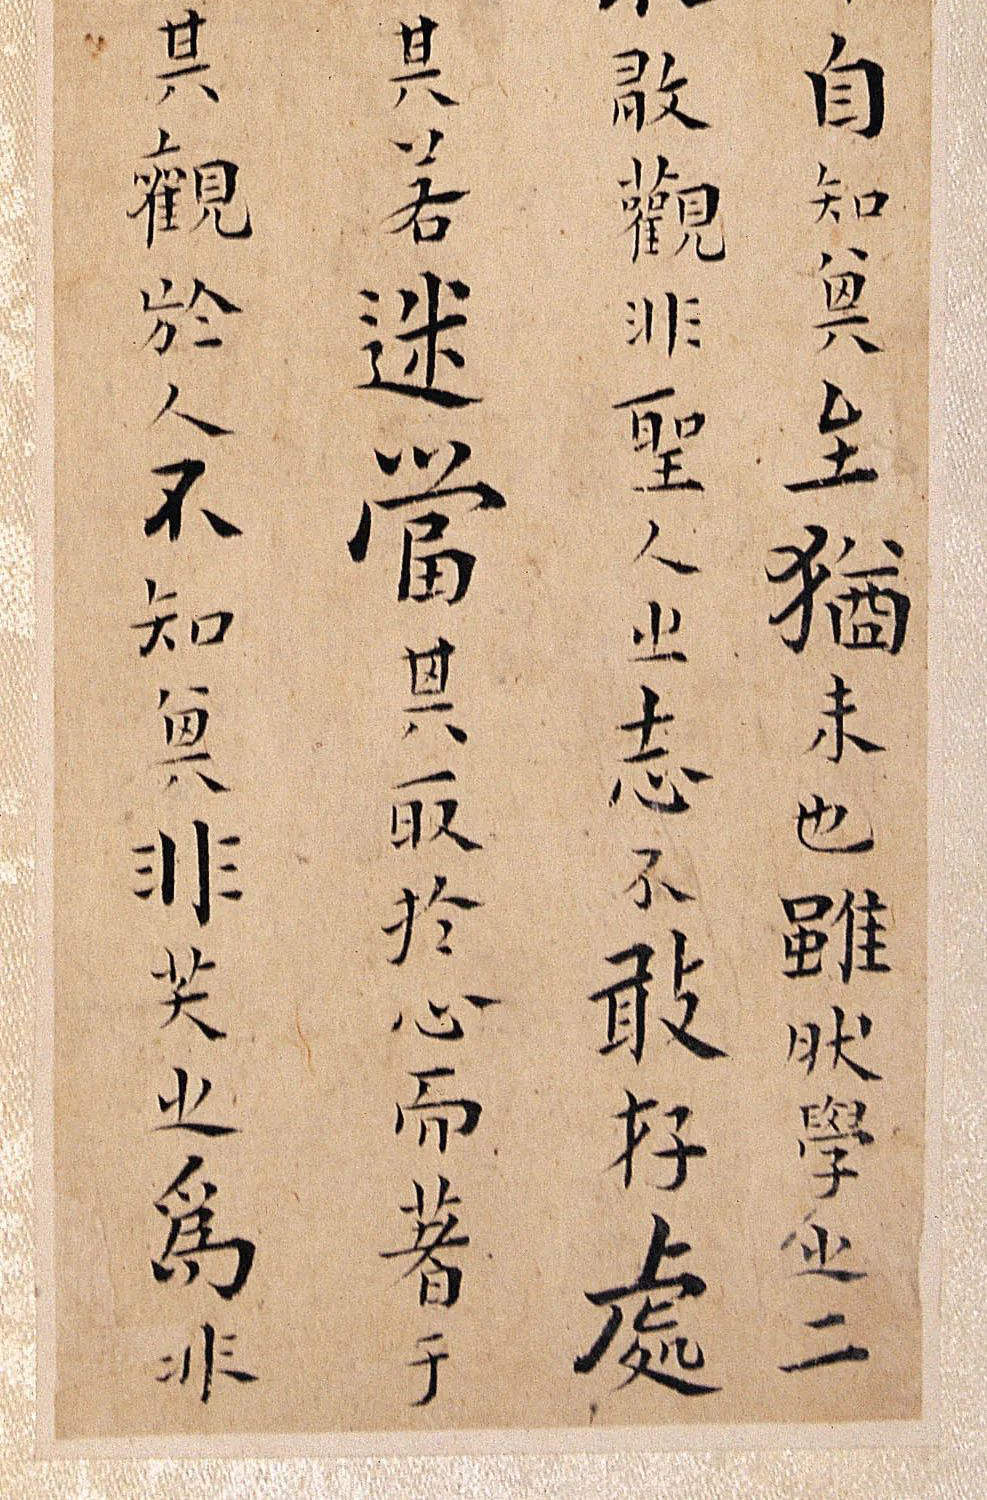 自知其至猶未也雖然學之二
敢觀非聖人之志不敢存處
其若迷當其取於心而著于
其觀於人不知其非笑之爲非